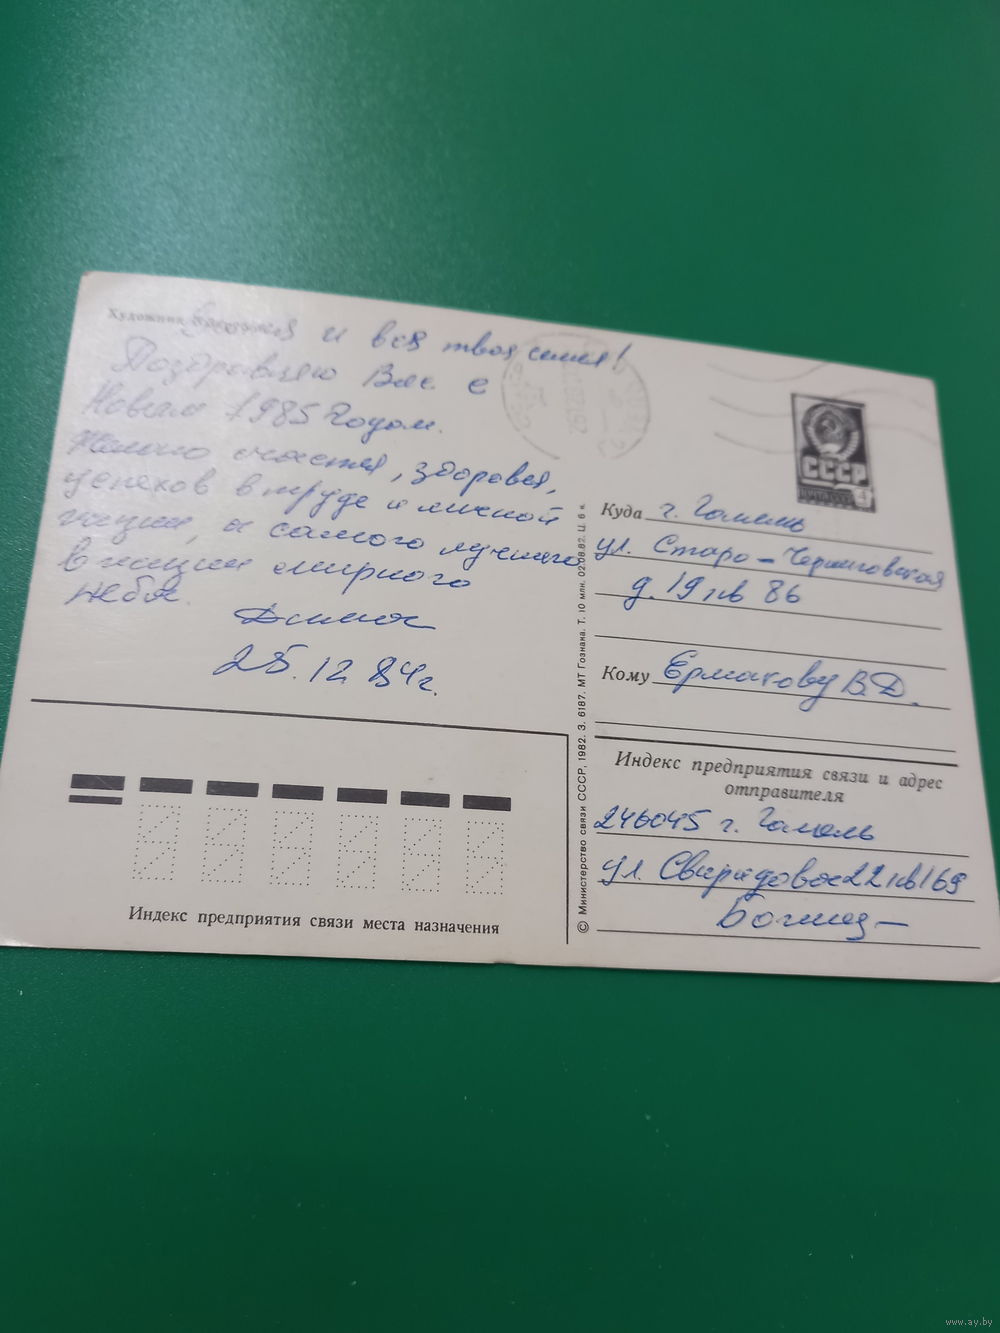 Художник
и вся твоя семья!
Поздравляю Вас с
Новым 1985 Годом.
Желаю счастья, здоровья,
успехов в труде и личной
жизни, а самого лучшего
в жизни мирного
неба.
Дима
25.12.84г.
Куда г. Гомель
ул. Старо-Черниговская
д. 19 кв 86
Кому Ермакову В.Д.
Индекс предприятия связи и адрес
отправителя
246045 г. Гомель
ул. Свиридова 22 кв 169
Индекс предприятия связи места назначения
© Министерство связи СССР, 1982. З. 6187. МТ Гознака. Т. 10 млн. 02.08.82. Ц. 6 к.
СССР
4
www.ay.by